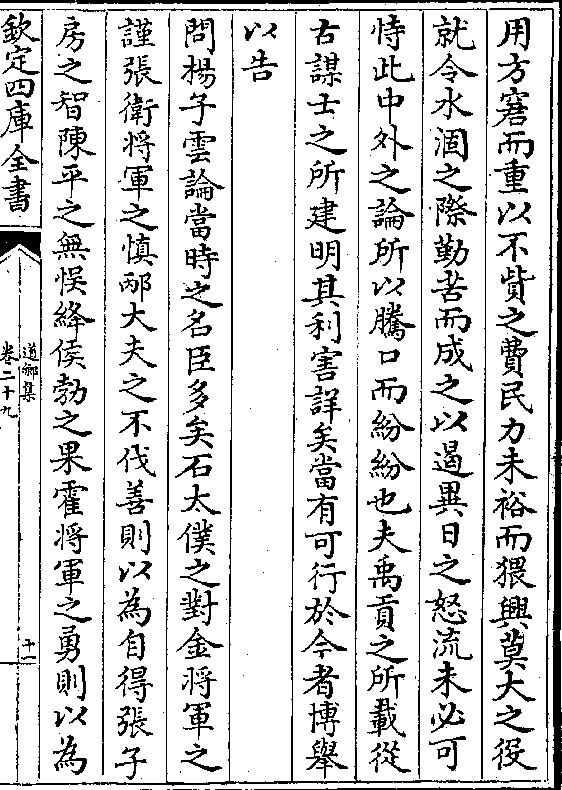 用方窘而重以不貲之費民力未裕而猥興莫大之役
就令水涸之際勤苦而成之以遏異日之怒流未必可
恃此中外之論所以騰口而紛紛也夫禹貢之所載從
古謀士之所建明其利害詳矣當有可行於今者博舉
以告
問楊子雲論當時之名臣多矣石太僕之對金將軍之
謹張衛將軍之慎邴大夫之不伐善則以為自得張子
房之智陳平之無悞絳侯勃之果霍將軍之勇則以為
欽定四庫全書
道鄉集
卷二十九
十一